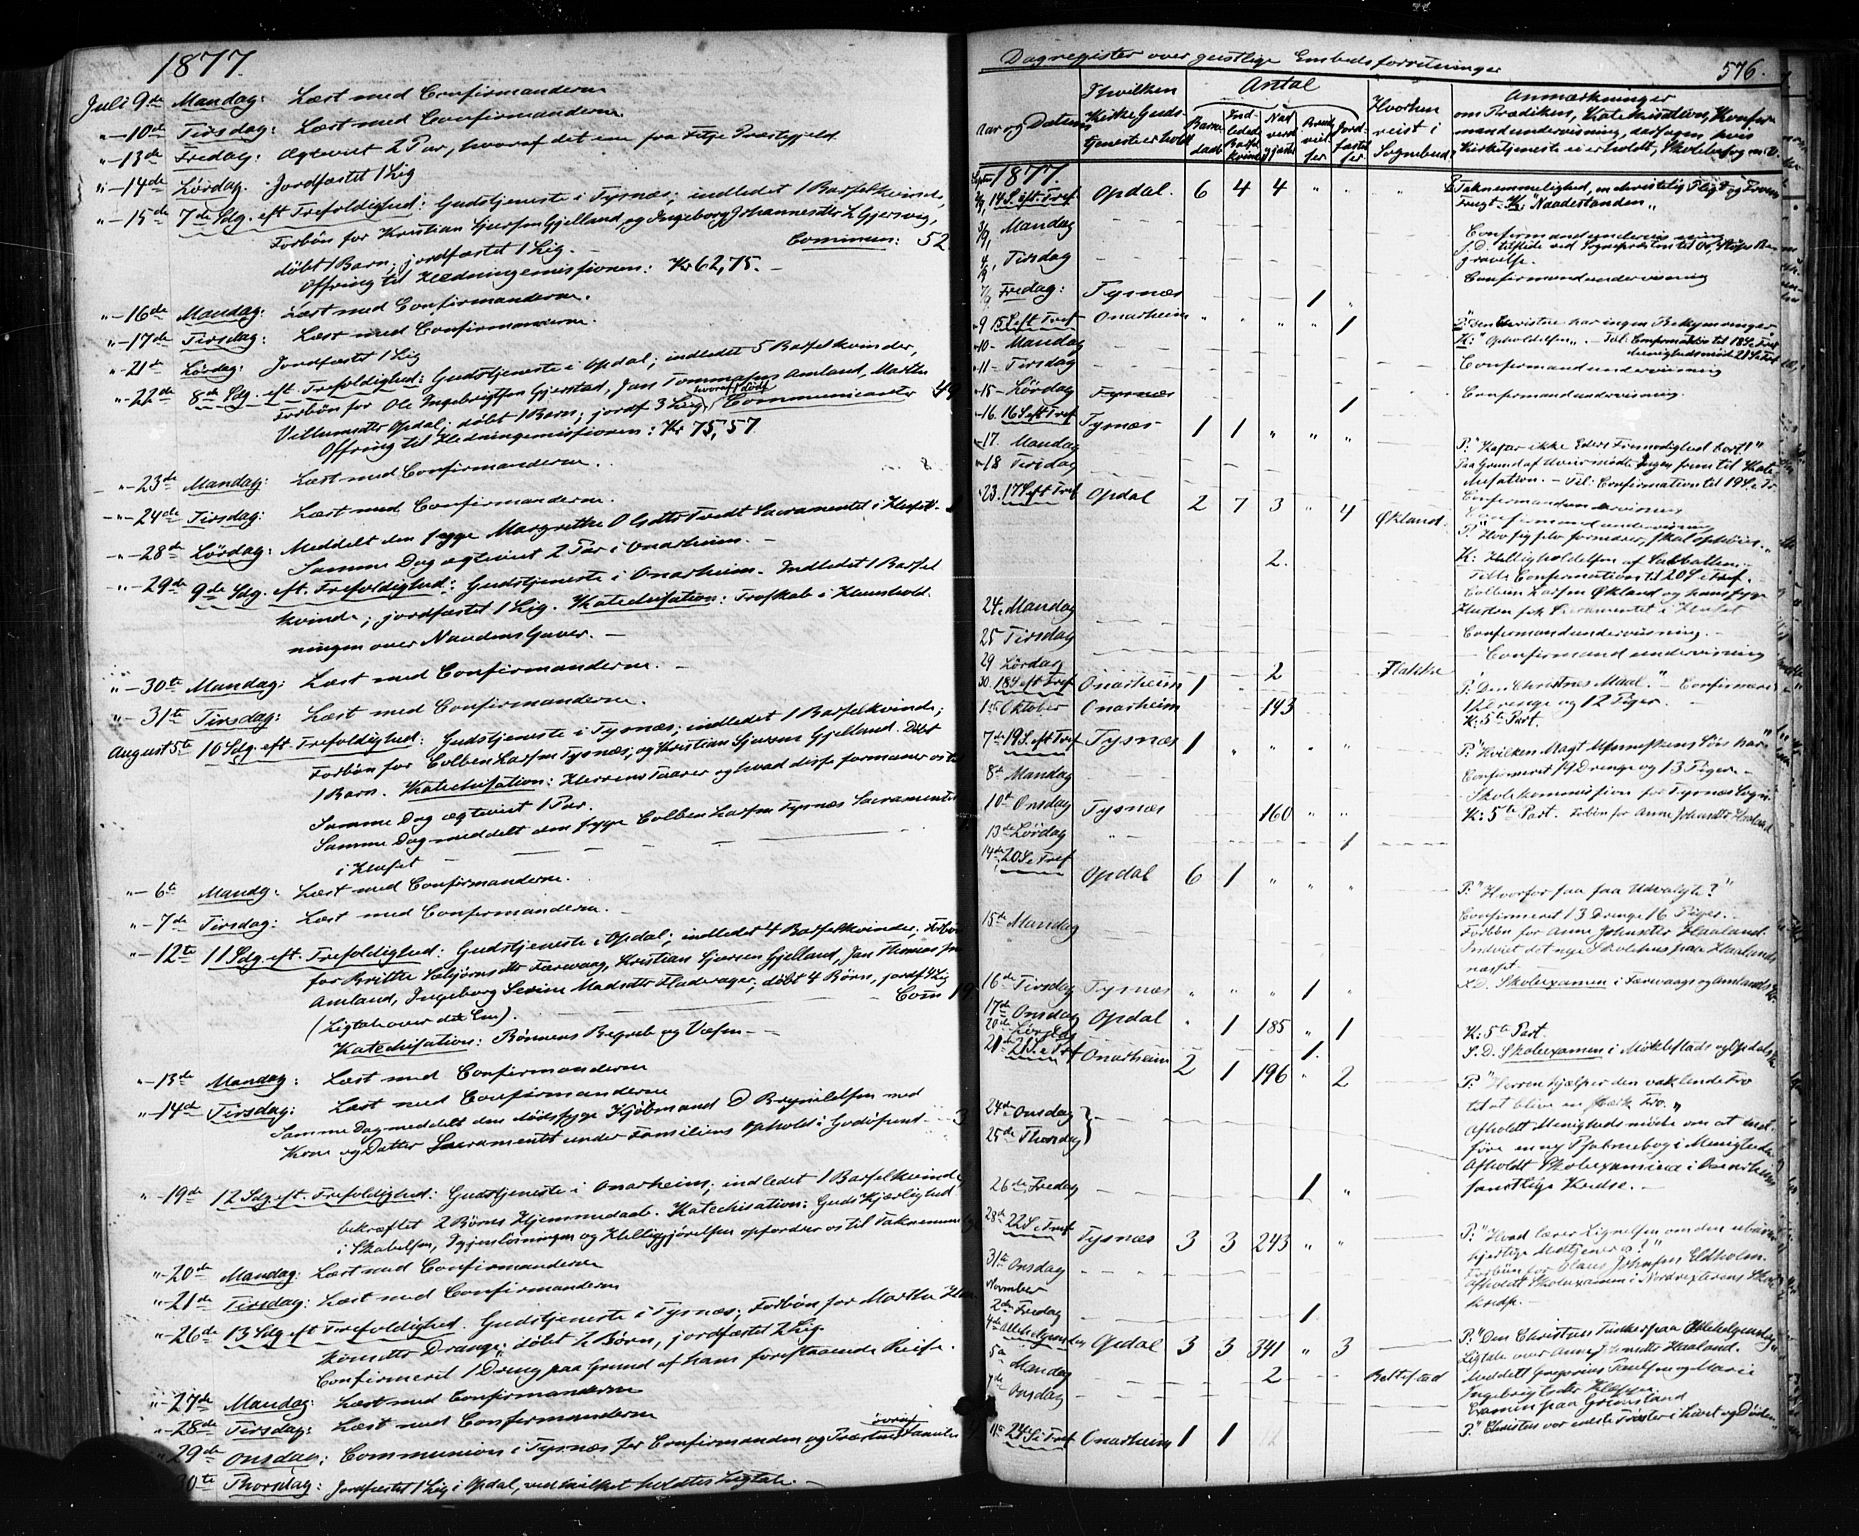 1877.
Juli 9de Mandag: Læst med Confirmanderne
"-10de Tirsdag: Læst med Confirmanderne
"-13de Fredag: Ægteviet 2 Par, hvoraf det ene fra Fitje Præstegjeld
"-14de Lørdag. Jordfæstet 1 Lig
"-15de 7de Sdg. eft. Trefoldighed: Gudstjeneste i Tysnæs; indledet 1 Barselkvinde,
Forbøn for Kristian Gjelland, og Ingeborg Johannesdtr L. Gjersvig,
døbt 1 Barn; jordfæstet 1 Lig. Communic: 52
Offring til Hedningemissionen: Kr 62,75. -
"-16de Mandag: Læst med Confirmanderne.
"-17de Tirsdag: Læst med Confirmanderne.
"-21de Lørdag: Jordfæstet 1 Lig
"-22de 8de Sdg. eft. Trefoldighed: Gudstjeneste i Opdal; indledet 5 Barselkvinder,
Forbøn for Ole Ingebrigtsen Gjerstad, Jan Tommasen Amland, Martha
Villumsdtr Opdal; døbt 1 Barn; jordf 3 Lig, Communicanter 49
Offring til Hedningemissionen: Kr 75,57
"-23de Mandag: Læst med Confirmanderne.
"-24de Tirsdag: Læst med Confirmanderne.
"-28de Lørdag: Meddelt den syge Margrethe Olsdtr Tvedt Sacramentet i Huset.
Samme Dag ægteviet 2 Par i Onarheim.
"-29de 9de Sdg. eft. Trefoldighed: Gudstjeneste i Onarheim. Indledet 1 Barsel
kvinde; jordfæstet 1 Lig. Katechisation: Troskab i Huushold
ningen over Naadens Gaver. -
"-30te Mandag: Læst med Confirmanderne. -
"-31te Tirsdag: Læst med Confirmanderne.
August 5te 10 Sdg. eft. Trefoldighed: Gudstjeneste i Tysnæs; indledet 1 Barselkvinde;
Forbøn for Colben Larsen Tysnæs, og Kristian Gjelland. Døbt
1 Barn. Katechisation: Herrens Taarer og hvad disse formaner os til
Samme Dag ægteviet 1 Par.
Samme Dag meddelt den syge Colben Larsen Tysnæs Sacramentet
i Huset
"-6te Mandg: Læst med Confirmanderne.
"-7de Tirsdag: Læst med Confirmanderne. -
"-12te 11 Sdg. eft. Trefoldighed: Gudstjeneste i Opdal; indledet 4 Barselkvinder; Forbøn
for Britthe Farevaag, Kristian Gjelland, Jan Thomas
Amland, Ingeborg Serine Madsdtr Fladerager; døbt 4 Børn, jordf 4 Lig
(Ligtale over det Ene). Com 19.
Katechisation: Bønnens Begreb og Væsen -
"-13de Mandag: Læst med Confirmanderne
"-14de Tirsdag: Læst med Confirmanderne
Samme Dag meddelt den dødssyge Kjøbmand D
Kone og Datter Sacramentet under Familiens Ophold i Godøsund - 3
"-19de 12 Sdg. eft. Trefoldighed: Gudstjeneste i Onarheim; indledet 1 Barselkvinde
bekræftet 2 Børns Hjemmedaab. Katechisation: Guds Kjærlighed
i Skabelsen, Igjenløsningen og Helliggjørelsen opfordrer os til Taknemmelighed
"-20de Mandag: Læst med Confirmanderne
"-21de Tirsdag: Læst med Confirmanderne
"-26de 13 Sdg eft Trefoldighed. Gudstjeneste i Tysnæs; Forbøn for Martha
Drange; døbt 2 Børn, jordfæstet 2 Lig
Confirmeret 1 Dreng paa Grund af hans forestaaende Reise.
"-27de Mandag: Læst med Confirmanderne
"-28de Tirsdag: Læst med Confirmanderne
"-29de Onsdag: Communion i Tysnæs for Confirmanden og Præstens Familie
30te Thorsdag: Jordfæstet 1 Lig i Opdal, ved hvilket holdtes Ligtale. -
Dagregister over geistlige Embedsforretninger 576.
Aar og Datum
I hvilken Kirke Guds tjeneste er holdt
Antal
Barne daab
Ind ledede Barsel kviner
Nad verd gjæster
Brude viel ser
Jord fæstel ser
Hvorhen reist i Sognebud
Anmærkninger
om Prædiken, Katechisation, Konfir
mandundervisning, dersom hvis
Kirketjeneste ei er holdt, Skolebesøg m. v.
Septbr 1877
2/9 14 S. eft. Tref Opdal. 6 4 4 " " Taknemmelighed, en christelig Pligt og Troens
Frugt. K: "Naadestanden"
3/9 Mandag Confirmandundervisning
4/9 Tirsdag Confirmandundervisning
7/9 Fredag: Tysnæs 1 "
"9 15 S eft Tref Onarheim " " " " 1 P: "Den Christne har ingen Bekymringer
"10- Mandag
"11- Tirsdag Confirmandundervisning
"15- Lørdag Tysnæs 1 Confirmandundervisning.
"16. 16 S eft Tref Tysnæs 1 1 " " " P: "Kaster ikke Eders Frimodighed bort!"
"17. Mandag
"18 Tirsdag
"23. 17 S eft Tref Opdal 2 7 3 " 4 Økland.
P: "Hvo sig selv fornedrer, skal ophøies."
2. K: Helligholdelsen af Sabbaten.
Colbein Larsen Økland og hans syge
Hustru fik Sacramentet i Huset
24. Mandag Confirmandundervisning. -
25 Tirsdag - Confirmand undervisning
29 Lørdag 2 Flakke
30. 18 S eft Tref Onarheim 1 P: "Den Christnes Maal." - Confirmeret
12 Drenge og 12 Piger. -
1ste Oktober Onarheim 143 K: 5te Part.
7de 19 S. eft Tref Tysnæs 1 " " " " P: "Hvilken Magt Menneskens Søn har"
Confirmeret 19 Drenge og 13 Piger. -
8de Mandag Skolekommission for Tysnæs Sogn.
10de Onsdag Tysnæs 160 " " K: 5te Part. Forbøn for Anne Johansdtr Haaland
13de Lørdag " " 1
14de 20 S e Tref Opdal 6 1 " " " P: "Hvorfor saa faa Udvalgte?"
Confirmeret 13 Drenge 16 Piger.
Forbøn for Anne Johnsdtr Haaland.
15de Mandag Indviet det nye Skolehus paa Haalands
næsset.
16de Tirsdag Tysnæs " " " 1 " S.D. Skoleexamen i Farevaags og Amlands
17de Onsdag Opdal " 1 185 " 1 K: 5te Part
20de Lørdag 1. S.D. Skoleexamen i Møklestads og Opdals
21de 21 S e Tref Onarheim 2 1 196 " 2 P: "Herren hjælper den vaklende Tro
til at blive en stærk Tro."
24de Onsdag Afholdt Menighedsmøde om at ind
25de Thorsdag føre en ny Psalmebog i Menigheden
Afholdt Skoleexamina i
26de Fredag 1 " samtlige Kredse. -
28de 22 S e Tref Tysnæs 3 3 243 " " P: "Hvad lærer Lignelsen om den ubarm
hjertige Medtjener os?"
Forbøn for Claus Johnsen Eldholm.
31te Onsdag Afholdt Skoleexamen i Nordre Skole
kreds. -
November
2de Fredag 1.
4de Allehelgensdag Opdal 3 3 341 " 3 P: "Den Christnes Tanker paa Allehelgensdag"
Ligtale over Anne Johnsdtr Haaland.
5te Mandag 2 Meddelt Gregorius Paulsen og Marie
7de Onsdag
11te 24 S e Tref Onarheim 1 1 P: "Christus vor eneste Trøster i Livet og Døden"